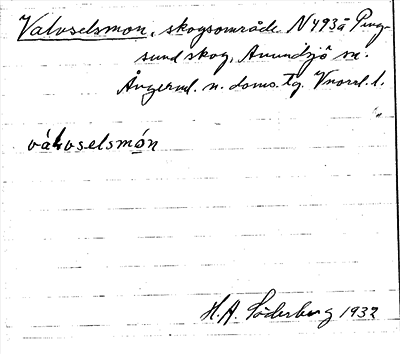 Valvselsmon, skogsområde N 493 å Peng-
sund skog, Anundsjö sn.
Ångerml. n. doms. tg. Vnorrl. l.
válvselsmón
H.A. Söderberg 1932